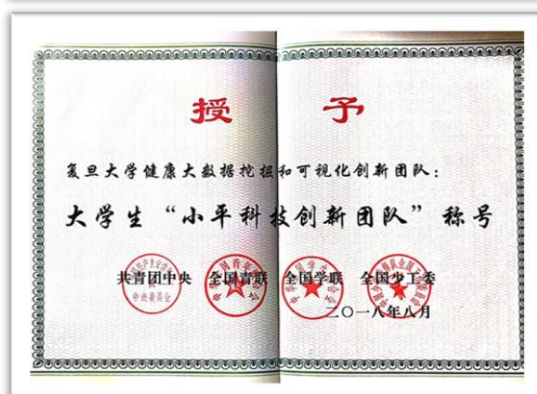 授 予
复旦大学健康大数据挖掘和可视化创新团队：
大学生“小平科技创新团队”称号
共青团中央 全国青联 全国学联 全国少工委
二〇一八年八月